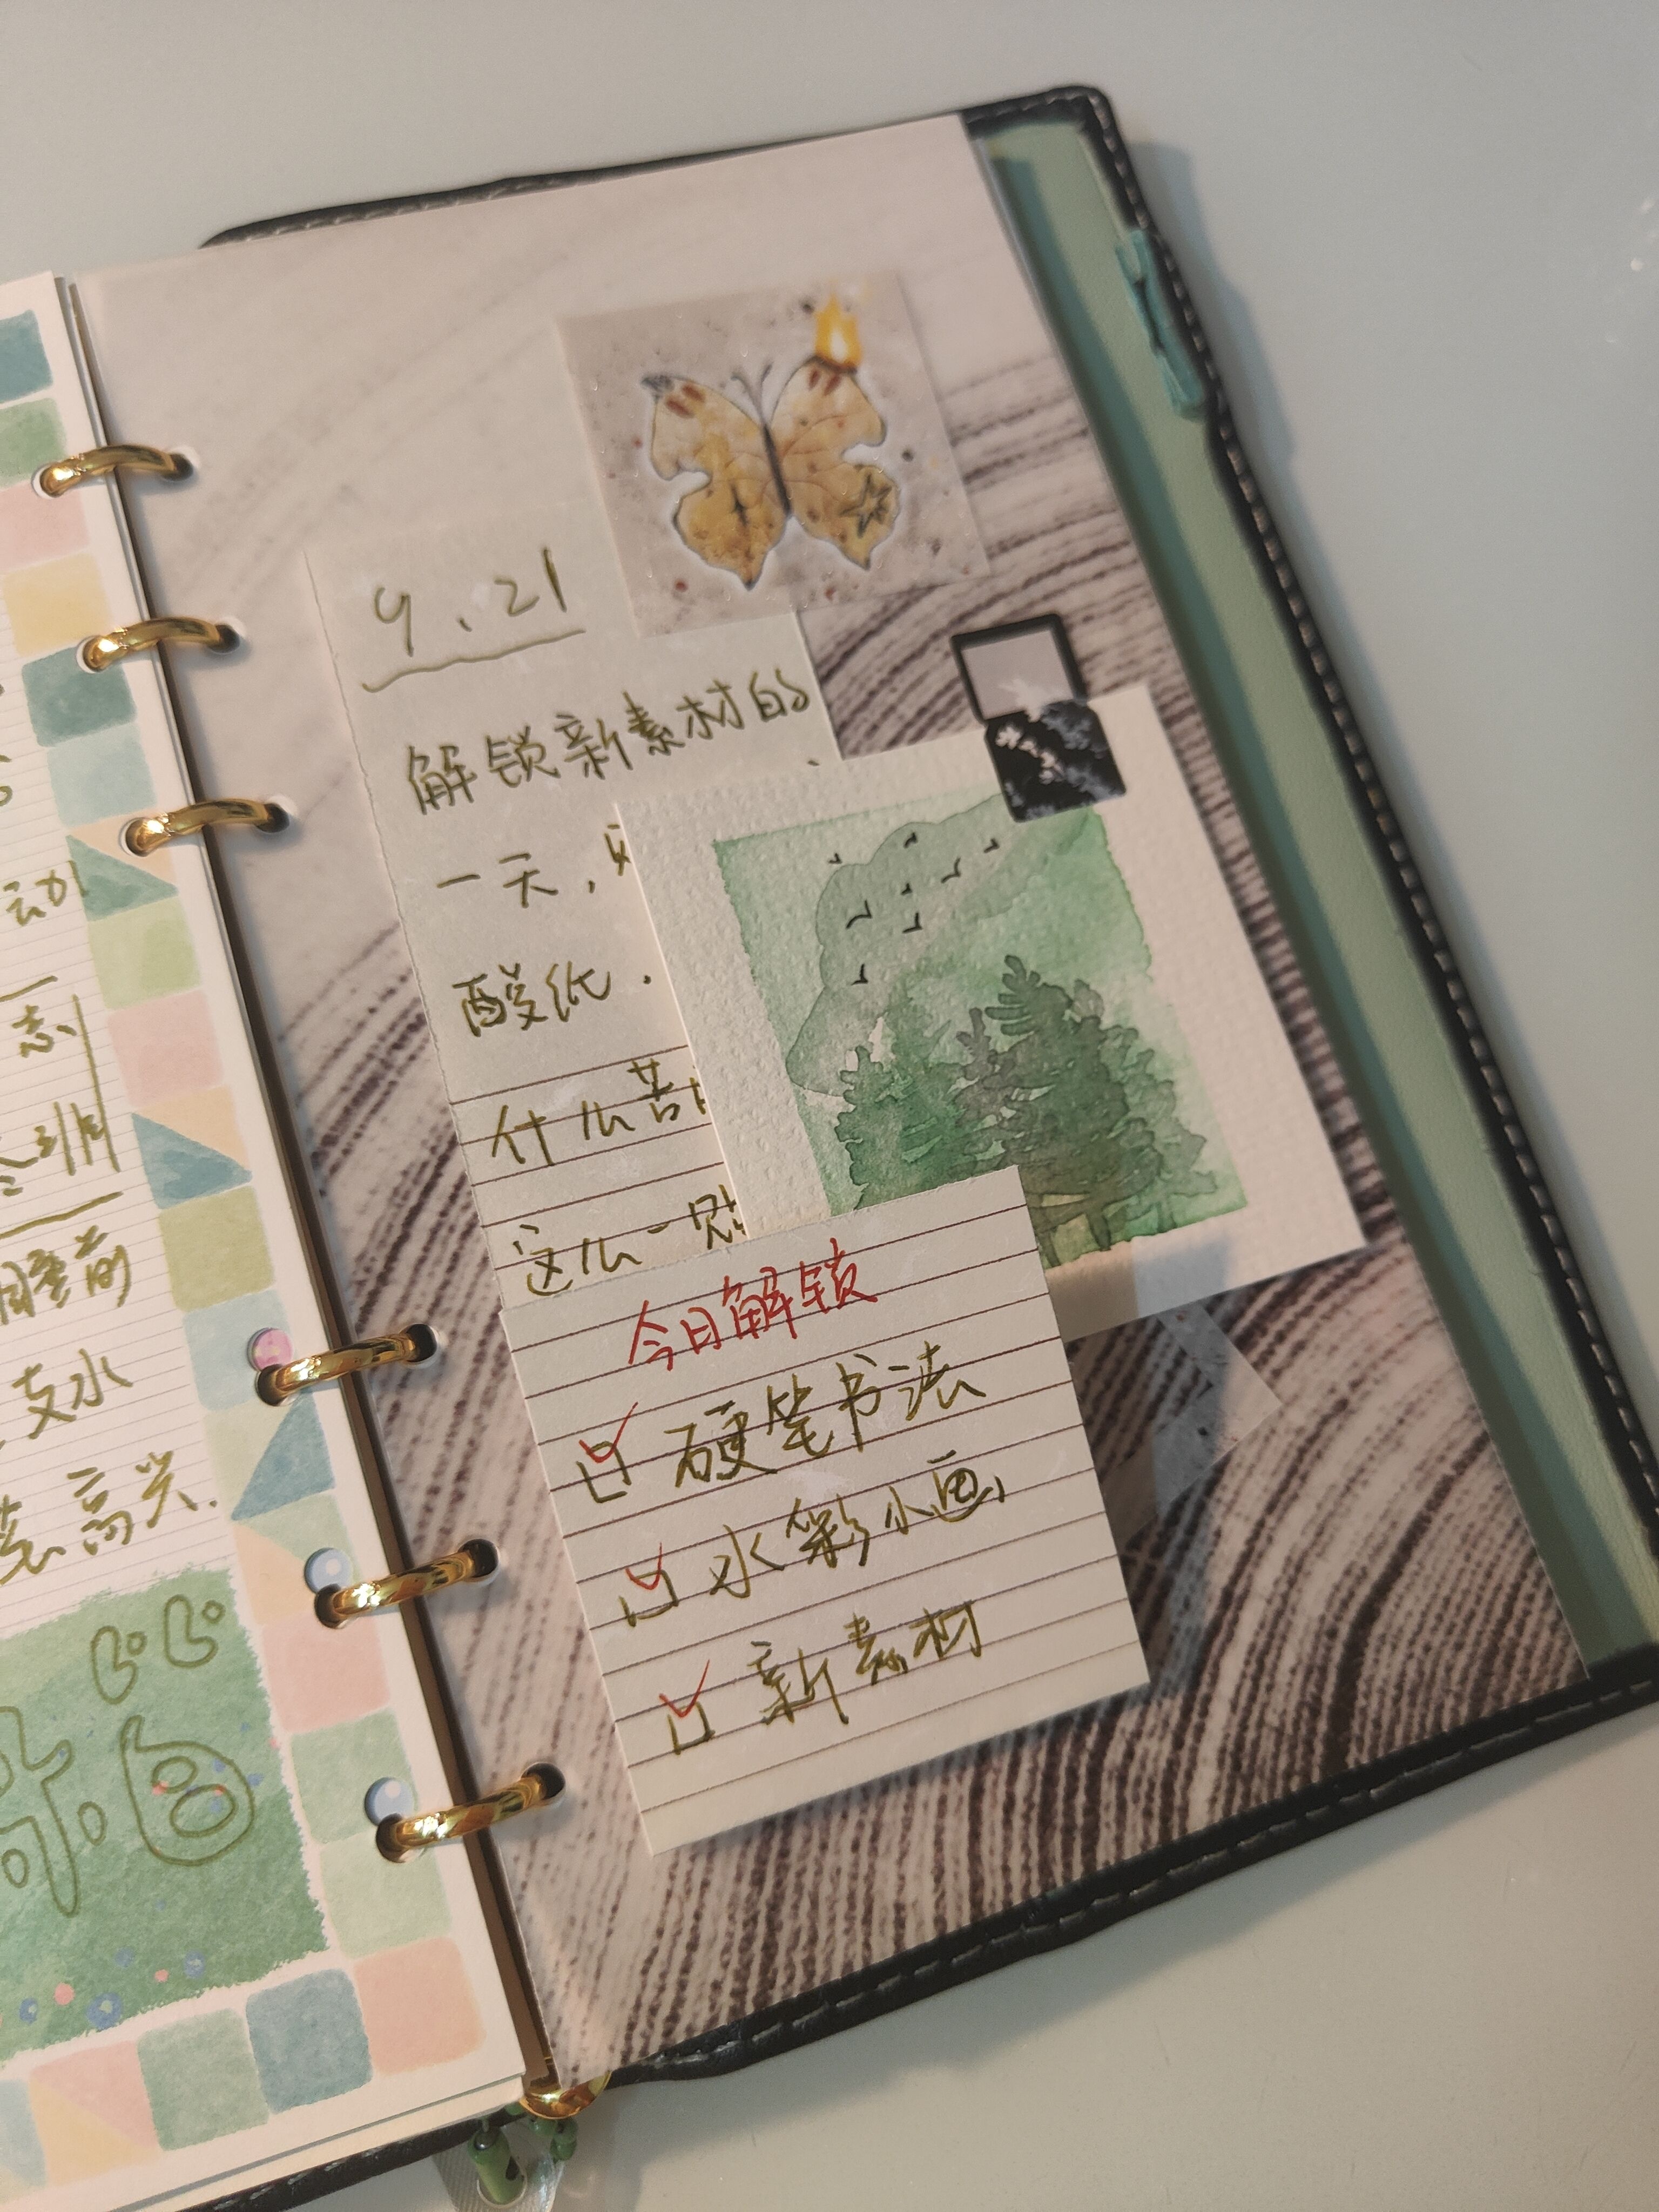 动
志
支水
高兴.
9.21
解锁新素材的
一天,
酸纸.
什么苦
这么一贴
今日解锁
硬笔书法
水彩小画
新素材